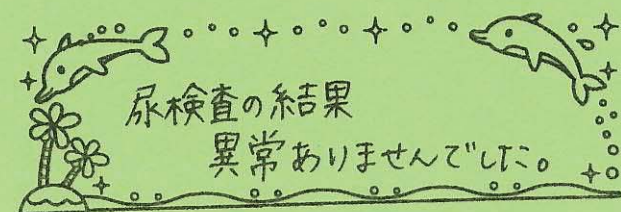 尿検査の結果
異常ありませんでした。